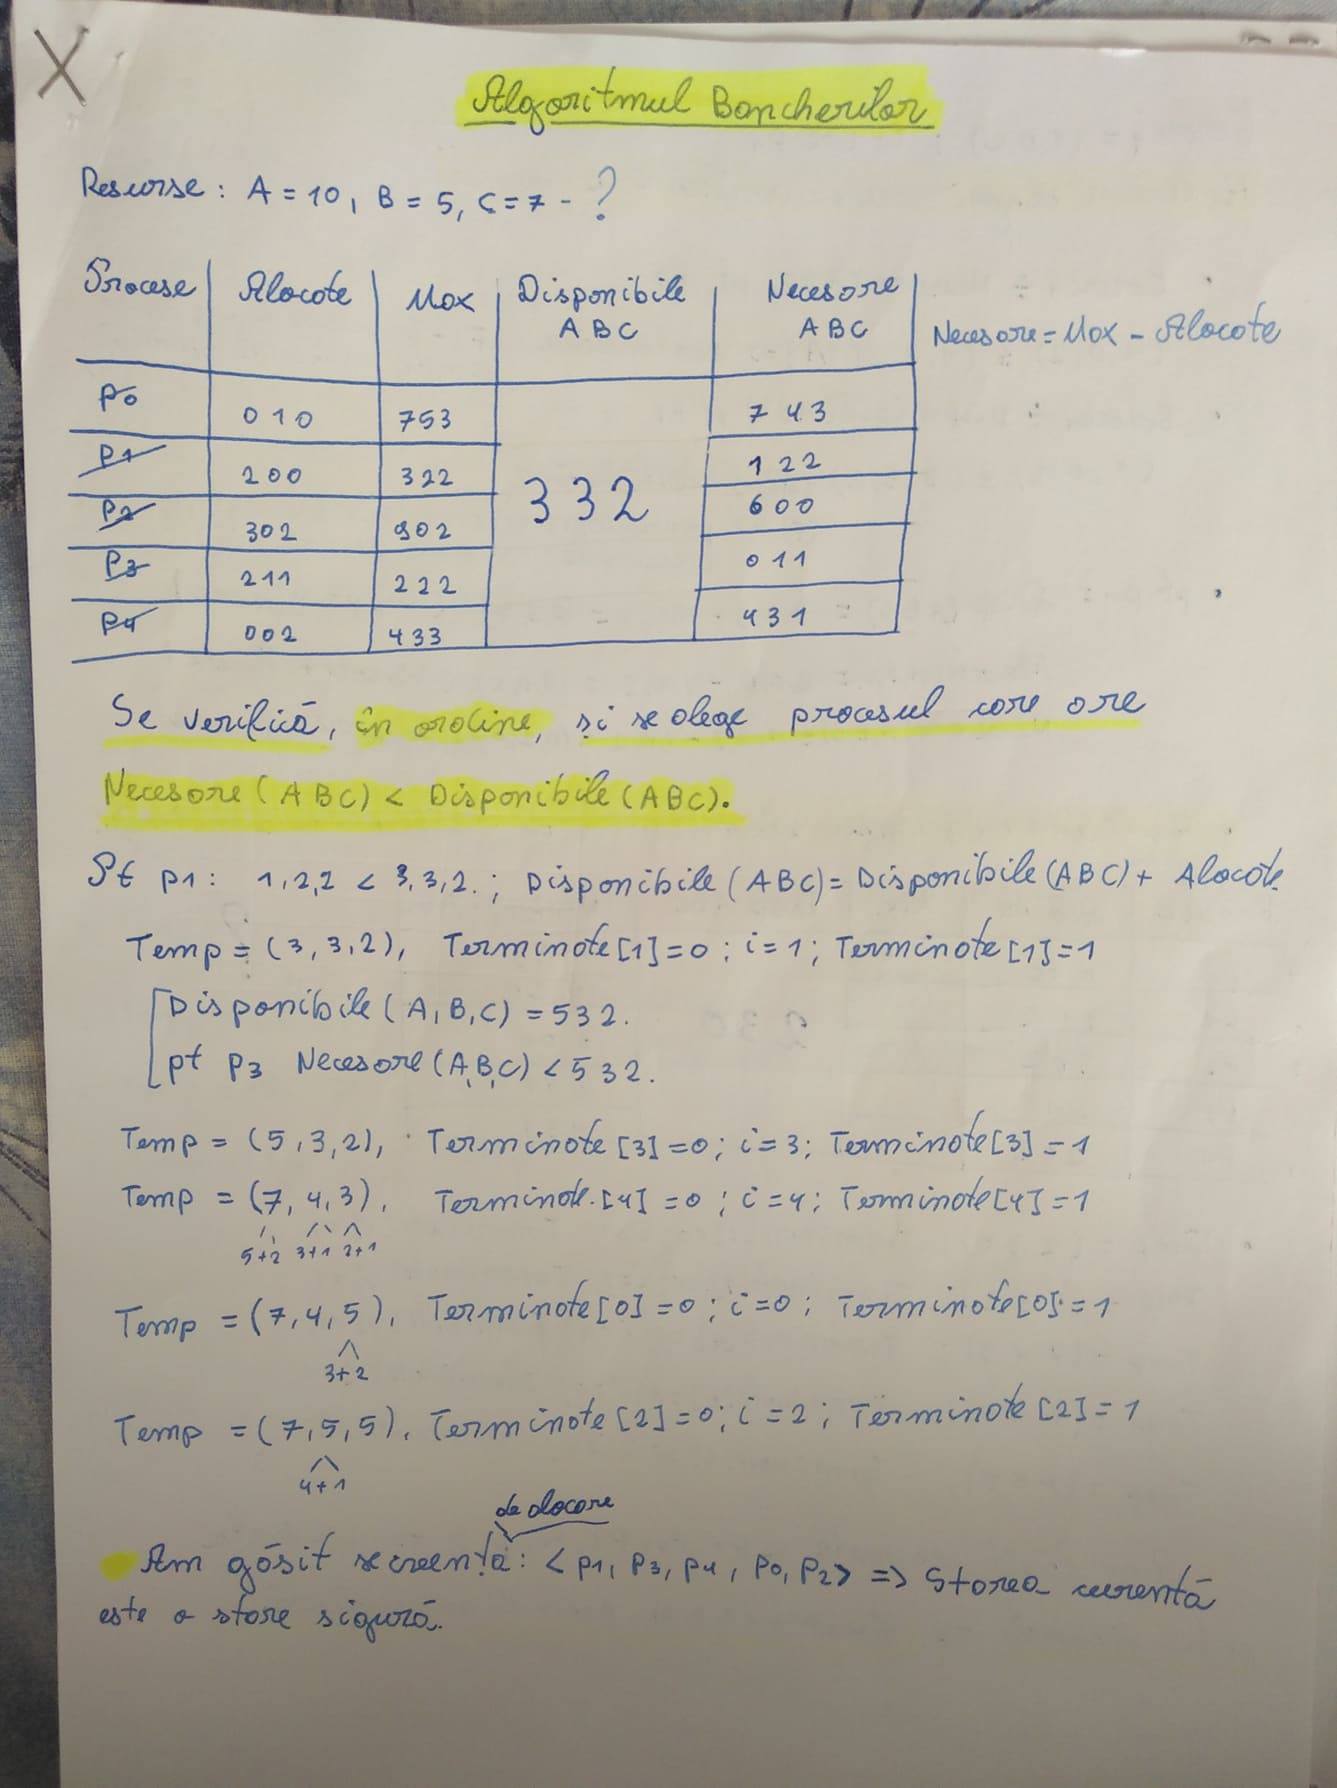 X
Algoritmul Bancherilor
Resurse: A = 10, B = 5, C = 7 - ?
Procese Alocate Max Disponibile Necesare
A B C A B C Necesare = Max - Alocate
P0 0 1 0 7 5 3 7 4 3
P1 2 0 0 3 2 2 3 3 2 1 2 2
P2 3 0 2 9 0 2 6 0 0
P3 2 1 1 2 2 2 0 1 1
P4 0 0 2 4 3 3 4 3 1
Se verifică, în ordine, și se alege procesul care are
Necesare (A B C) < Disponibile (A B C).
Pt P1: 1,2,2 < 3,3,2.; Disponibile (A B C) = Disponibile (A B C) + Alocate
Temp = (3, 3, 2), Terminate [1] = 0; i = 1; Terminate [1] = 1
Disponibile (A, B, C) = 5 3 2.
pt P3 Necesare (A, B, C) < 5 3 2.
Temp = (5, 3, 2), Terminate [3] = 0; i = 3; Terminate [3] = 1
Temp = (7, 4, 3), Terminat. [4] = 0; i = 4; Terminate [4] = 1
5+2 3+1 2+1
Temp = (7, 4, 5), Terminate [0] = 0; i = 0; Terminate [0] = 1
3+2
Temp = (7, 5, 5), Terminate [2] = 0; i = 2; Terminate [2] = 1
4+1
de alocare
Am găsit secvența: < P1, P3, P4, P0, P2 > => Starea curentă
este o stare sigură.